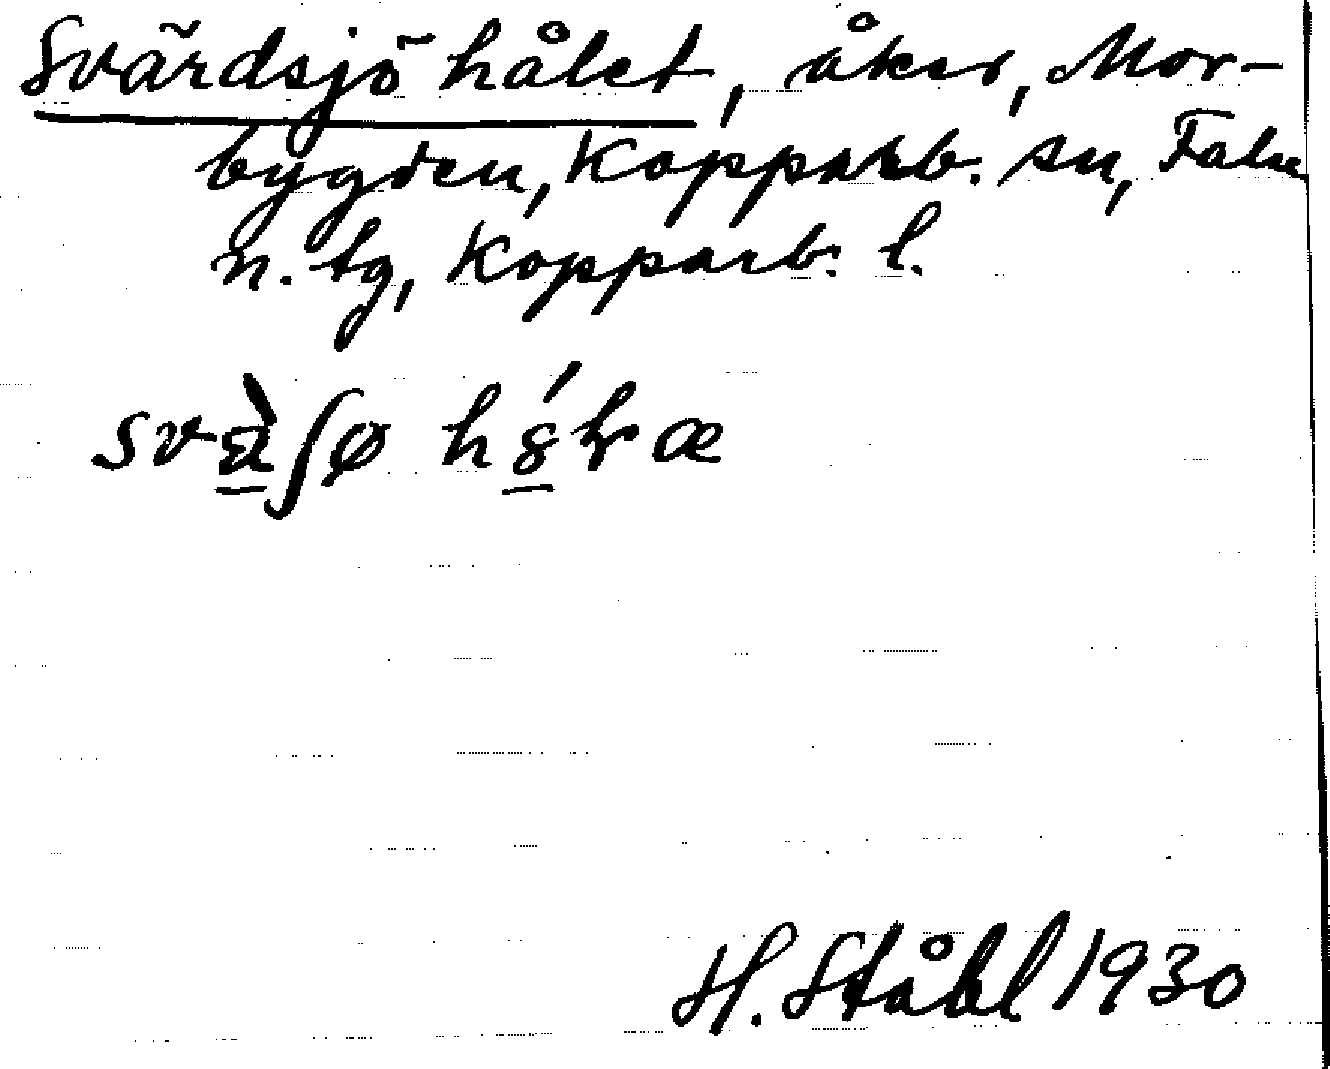 Svärdsjöhålet, åker, Mor-
bygden, Kopparb. sn, Falu
n. tg, Kopparb. l.
H. Ståhl 1930